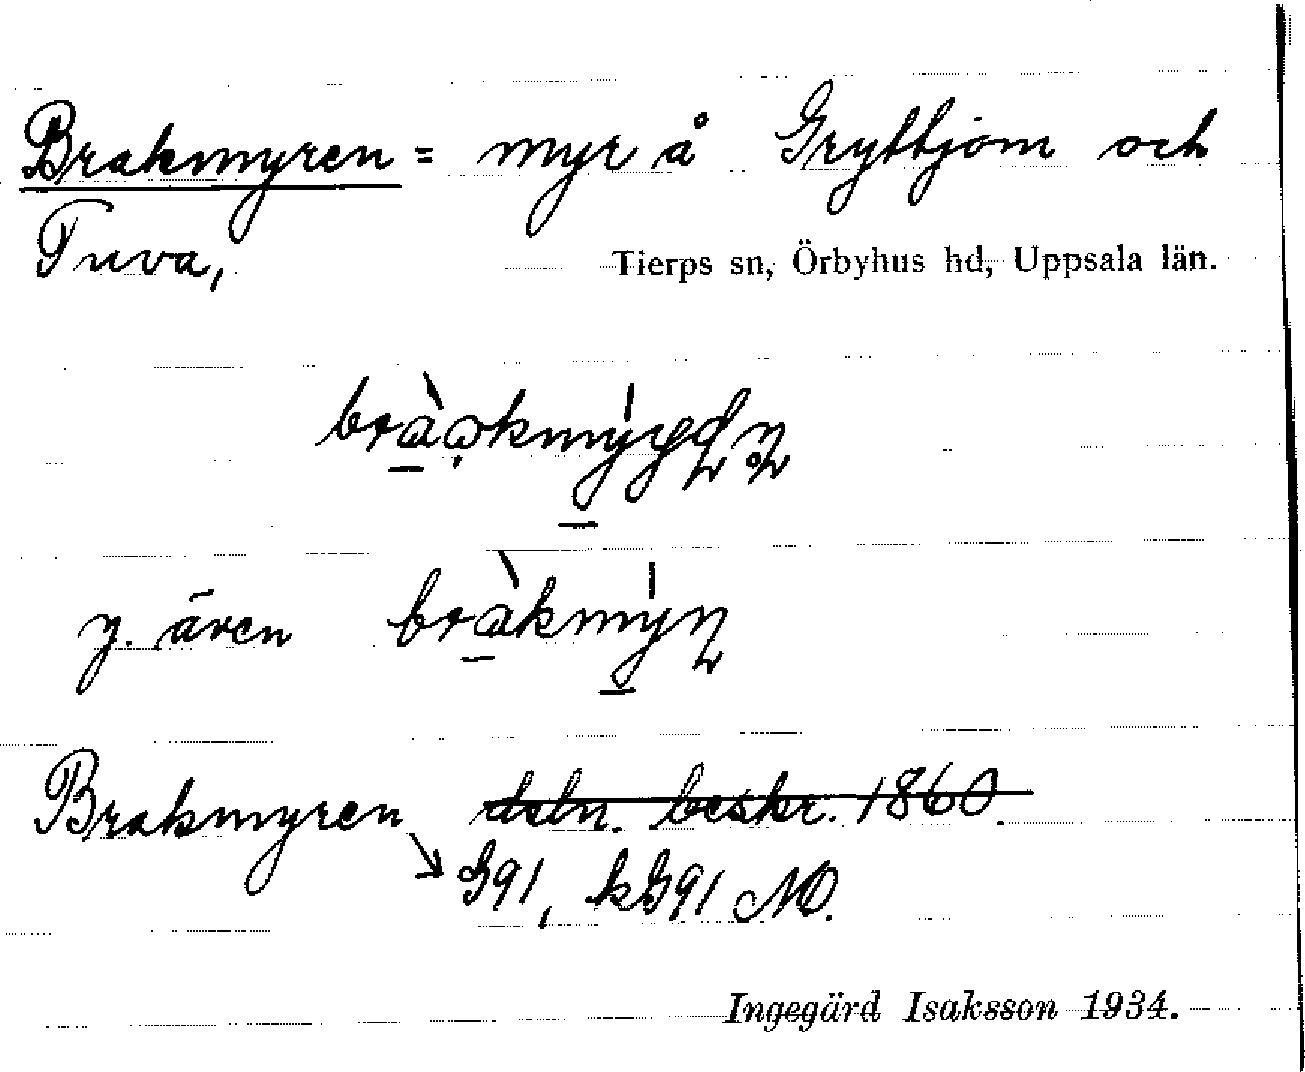 Brakmyren = myr å Gryttjom och
Tuva,
Tierps sn, Örbyhus hd, Uppsala län.
y. även
Brakmyren dsln. beskr. 1860.
G91, kG91 NO.
Ingegärd Isaksson 1934.